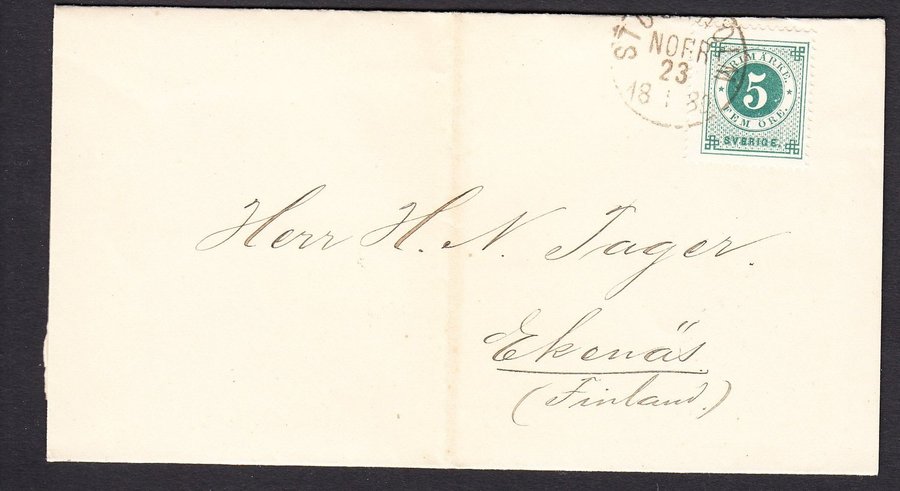 NORR
23
18 1
FRIMÄRKE.
5
FEM ÖRE.
SVERIGE.
Herr H. N. Tager.
Ekenäs
(Finland.)